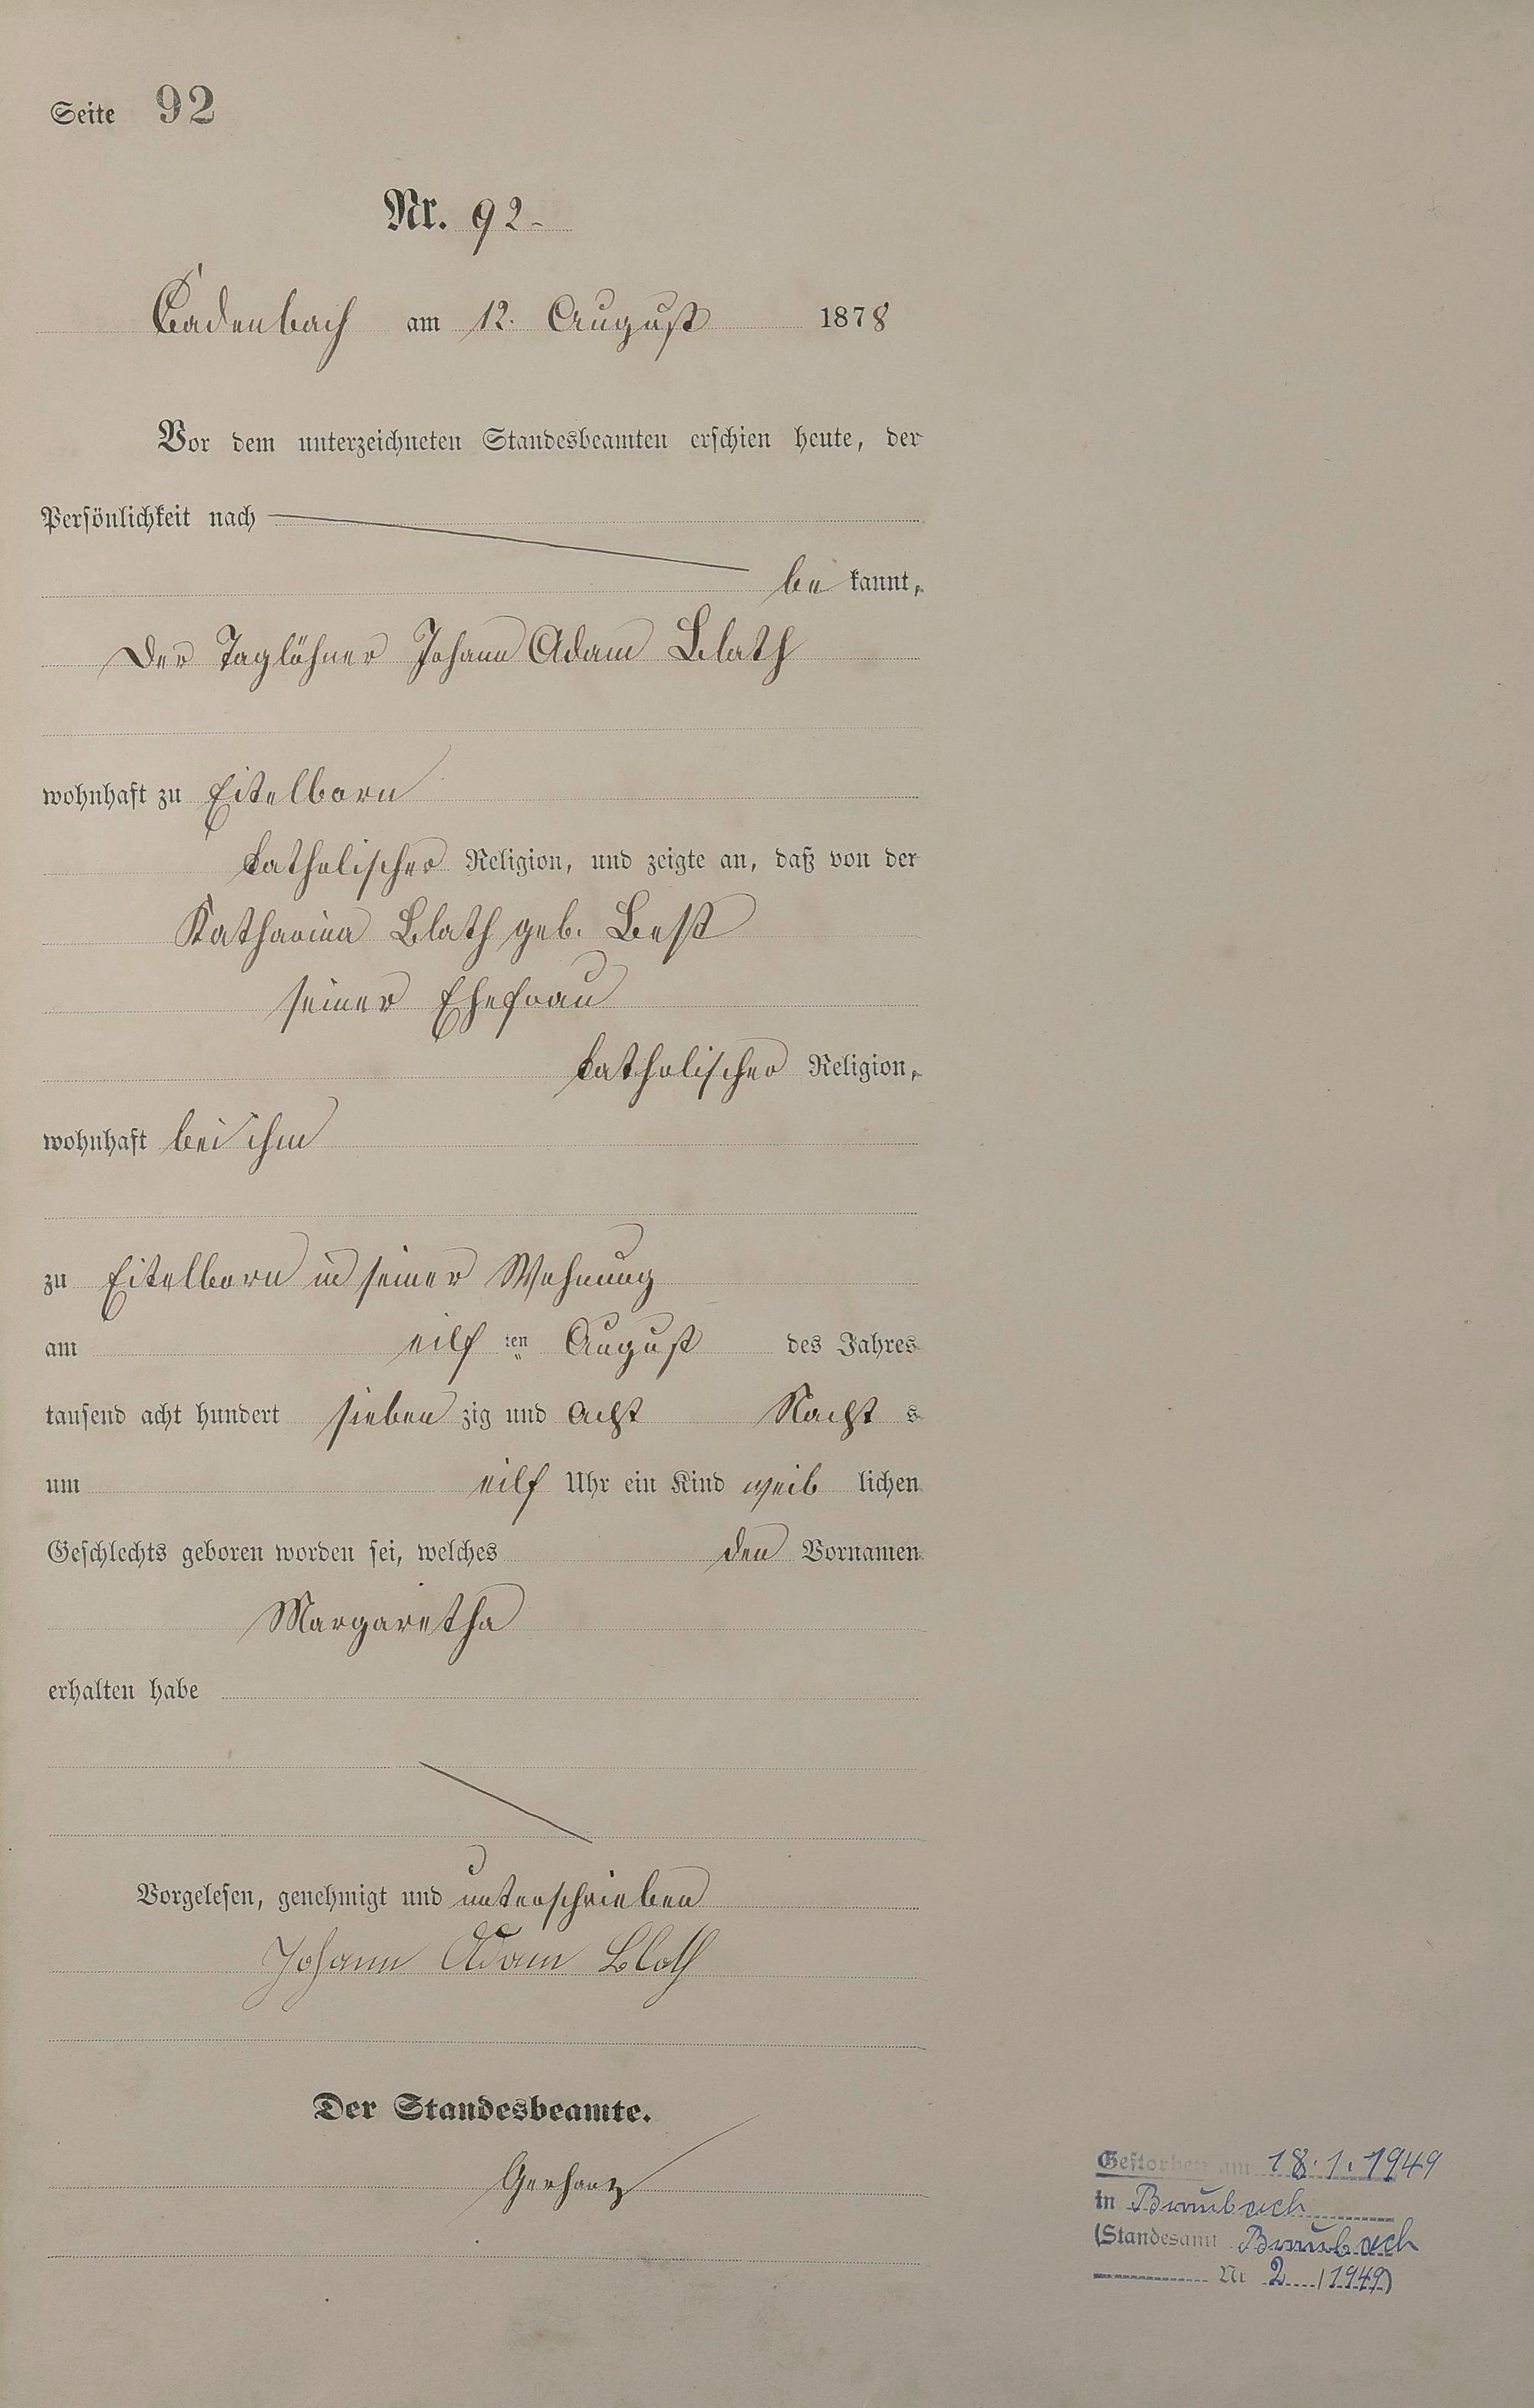 Seite 92
Nr. 92-
Cadenbach am 12. August 1878
Vor dem unterzeichneten Standesbeamten erschien heute, der
Persönlichkeit nach
be kannt,
Der Taglöhner Johann Adam Blath
wohnhaft zu Eitelborn
katholischer Religion, und zeigte an, daß von der
Katharina Blath geb. Best
seiner Ehefrau
katholischer Religion,
wohnhaft bei ihm
zu Eitelborn in seiner Wohnung
am eilf ten August des Jahres
tausend acht hundert sieben zig und acht Nacht s
um eilf Uhr ein Kind weib lichen
Geschlechts geboren worden sei, welches den Vornamen
Margaretha
erhalten habe
Vorgelesen, genehmigt und unterschrieben
Johann Adam Blath
Der Standesbeamte.
Gerharz
Gestorben am 18.1.1949
in Braubach
(Standesamt Braubach
Nr 2 / 1949)